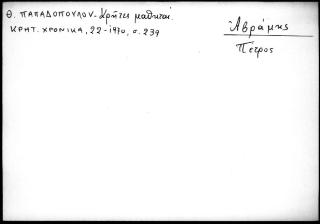 Θ. ΠΑΠΑΔΟΠΟΥΛΟΥ - Κρῆτες μαθηταί.
ΚΡΗΤ. ΧΡΟΝΙΚΑ, 22-1970, σ. 239
Ἀβράμης
Πέτρος